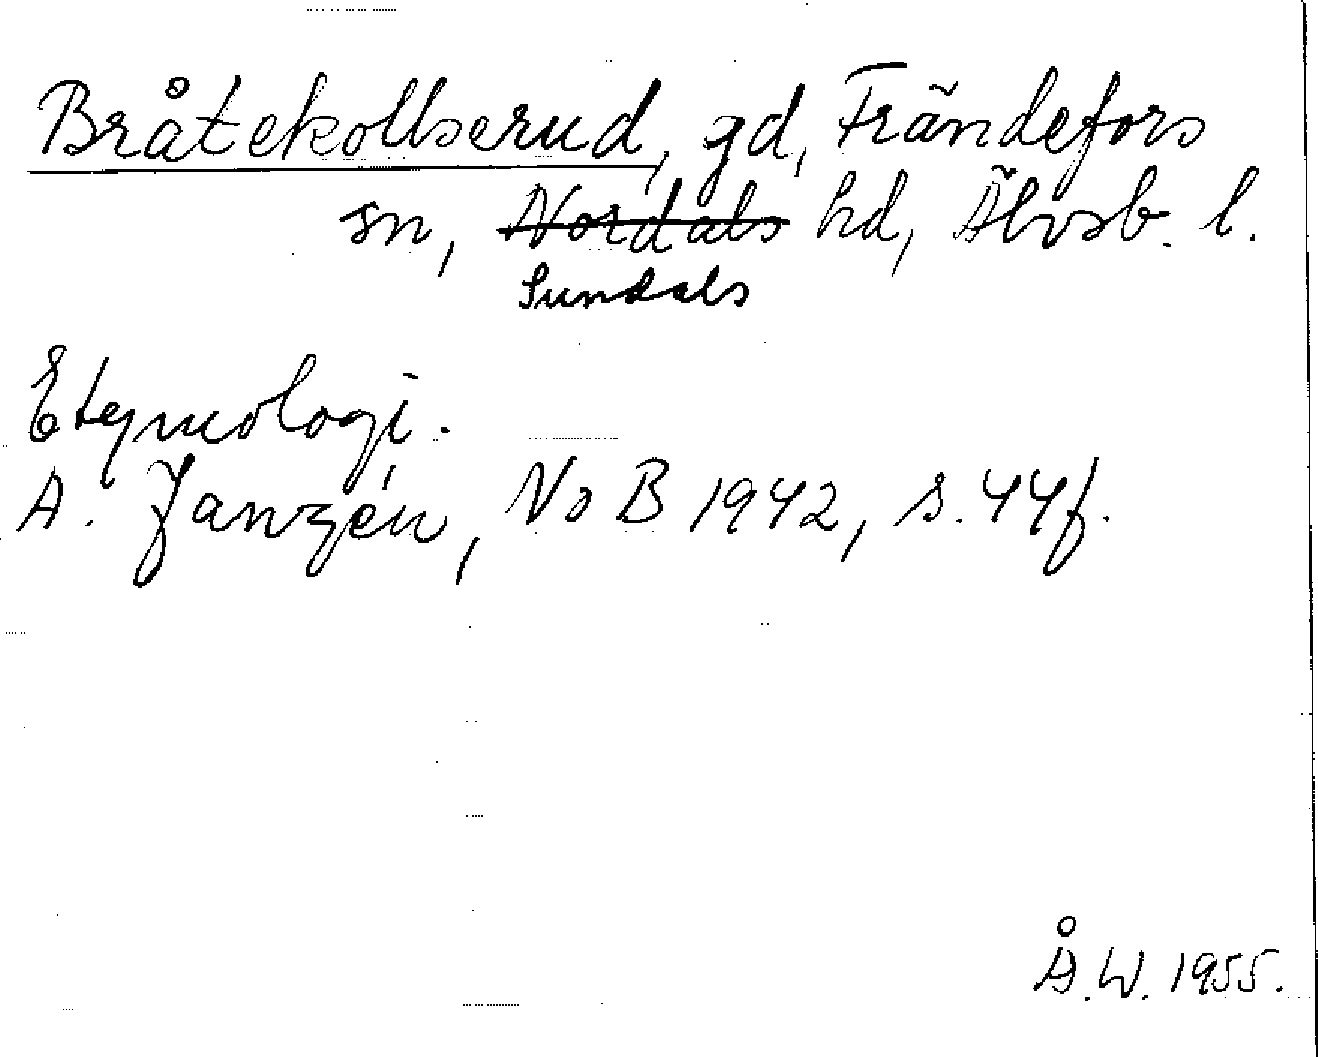 Bråtekollserud, gd, Frändefors
sn, Nordals hd, Älvsb. l.
Sundals
Etymologi.
A. Janzén, NoB 1942, s. 44f.
Å.W. 1955.